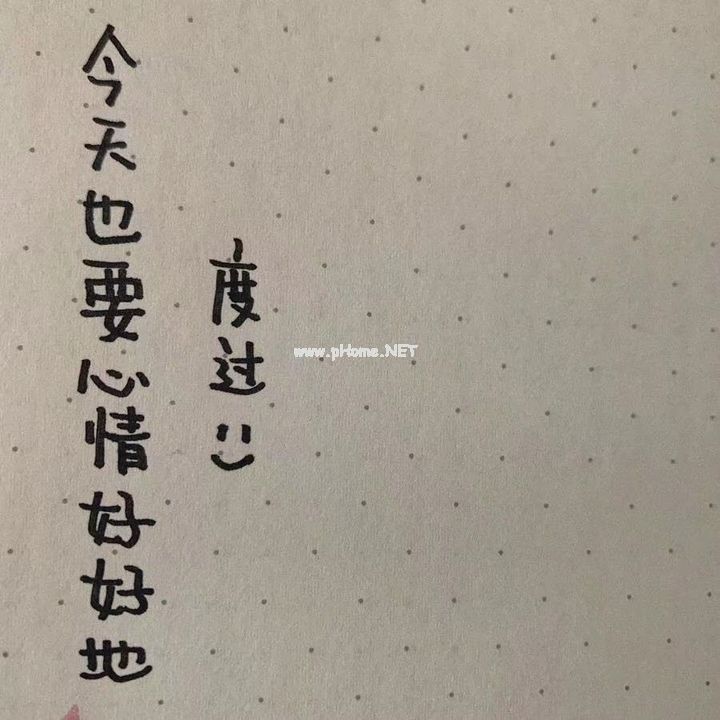 今天也要心情好好地
度过:)
www.pHome.NET